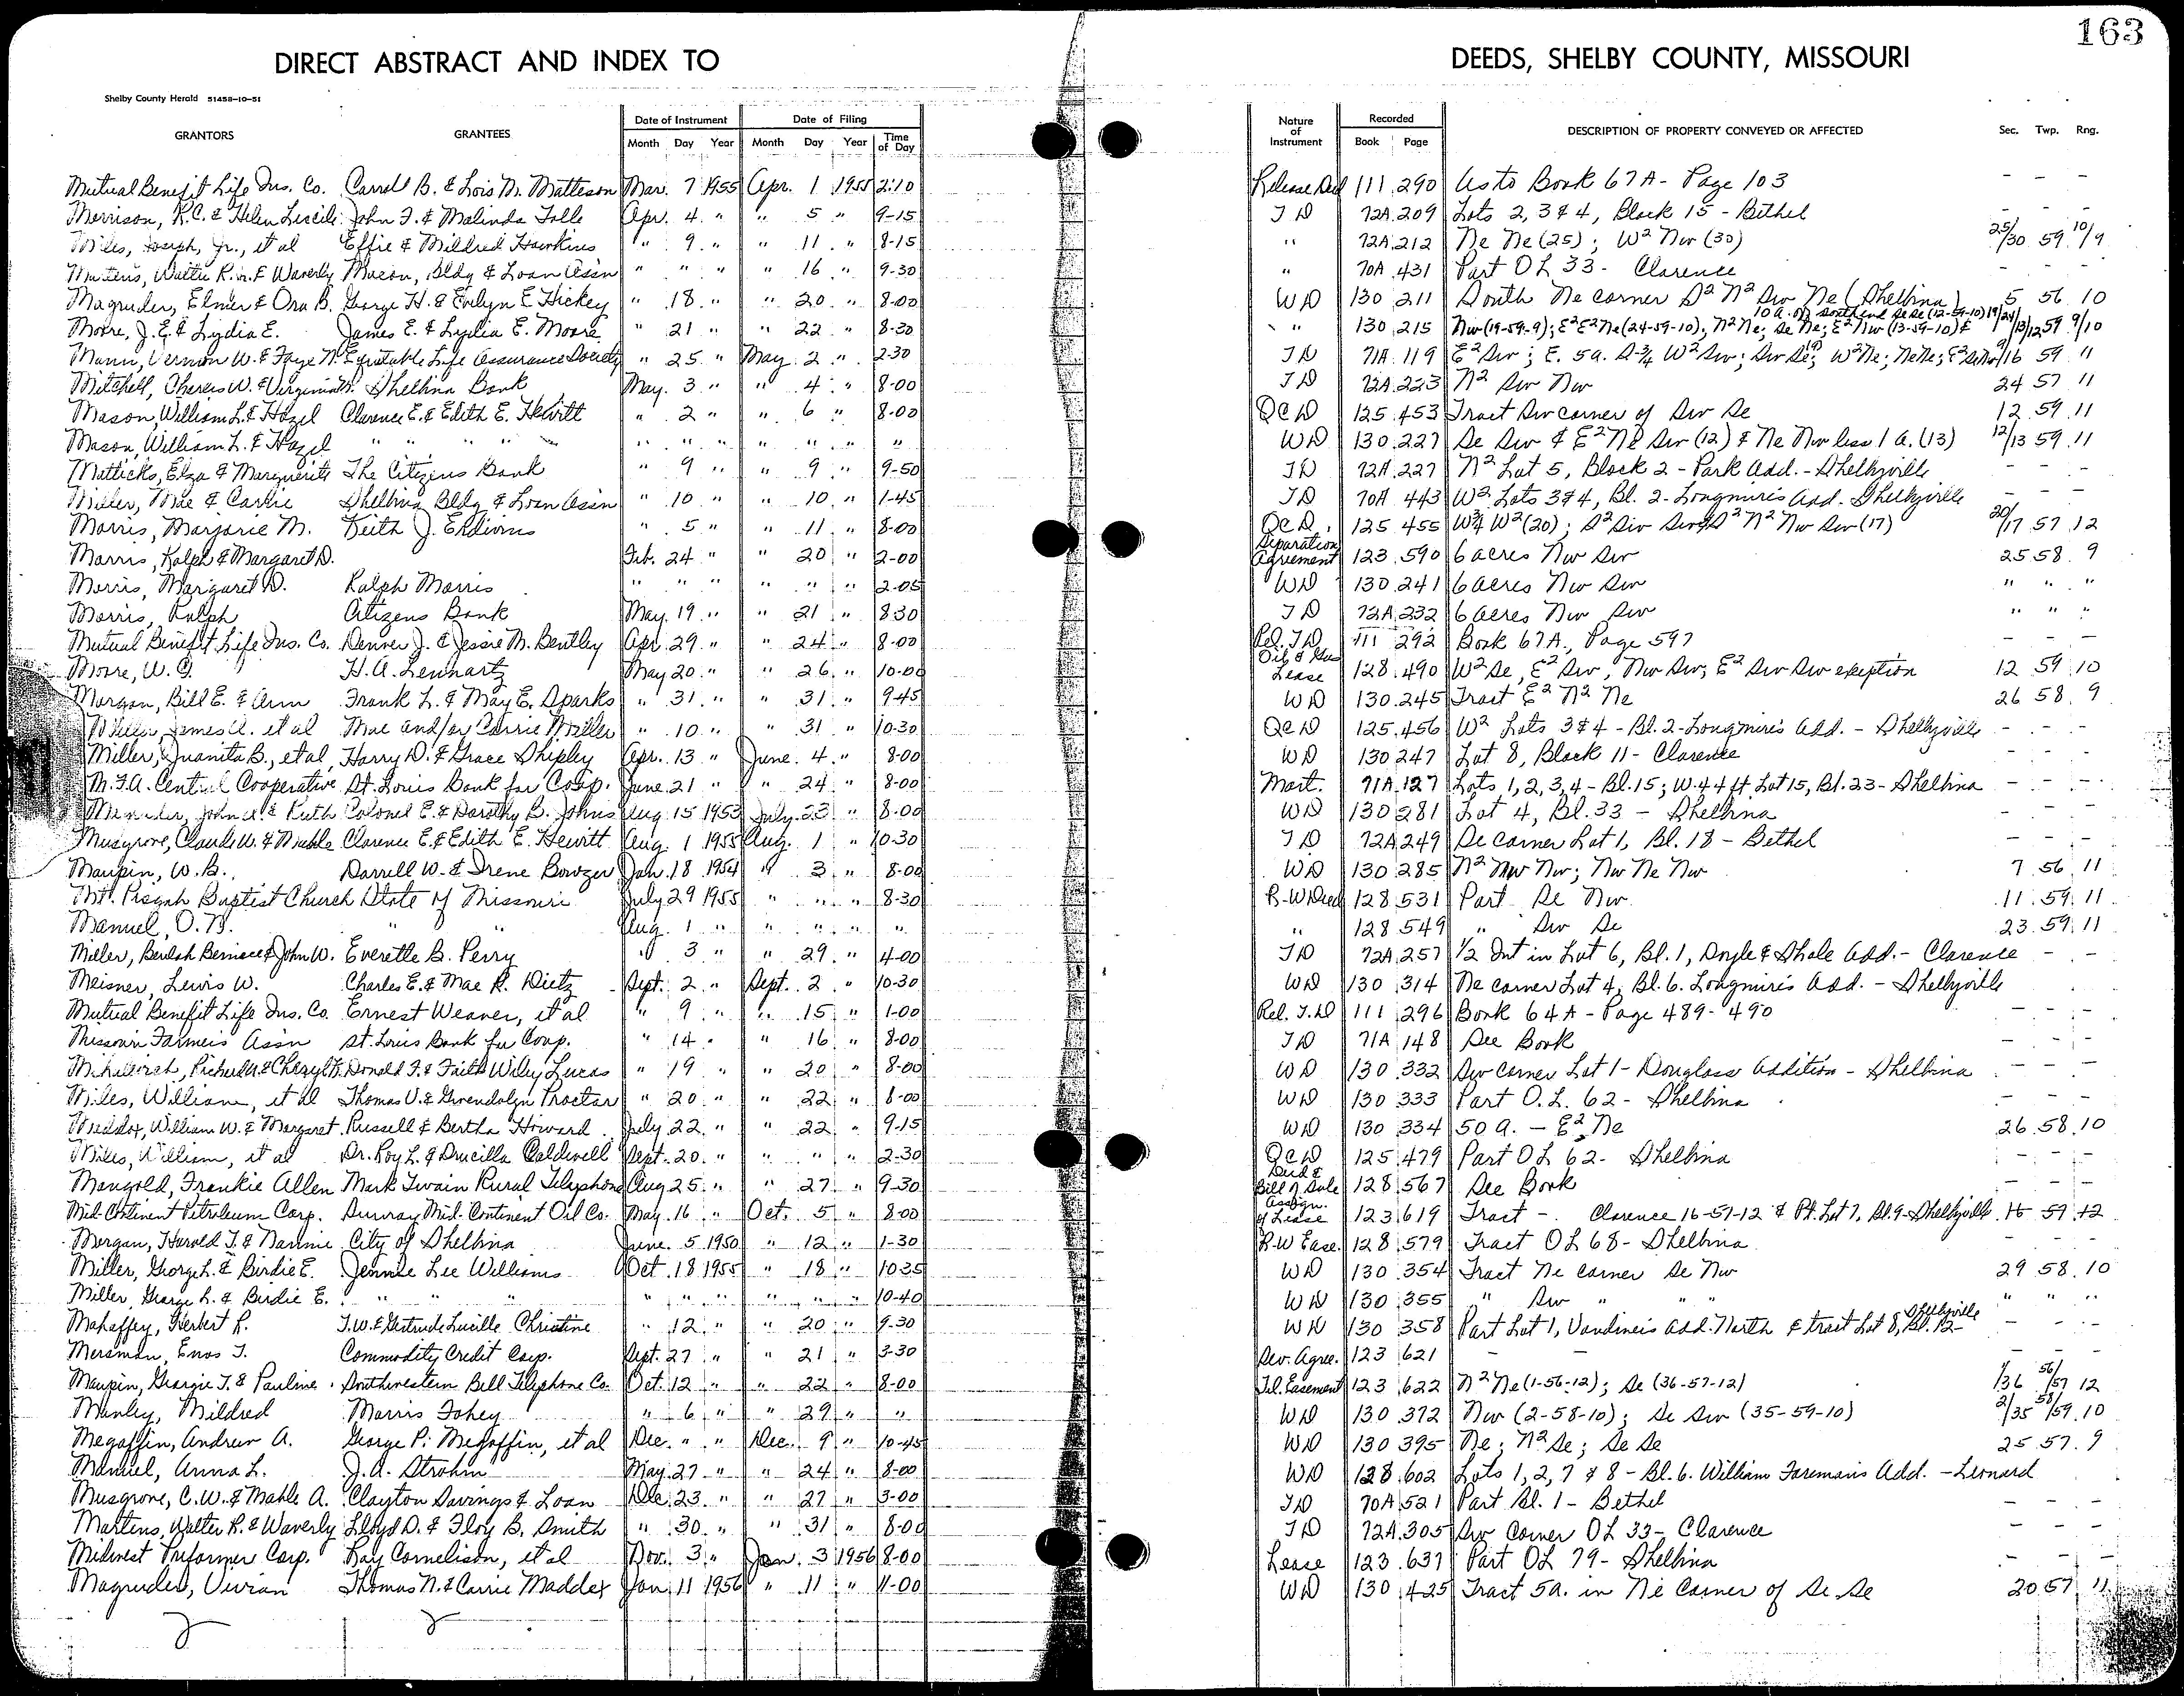 163
DIRECT ABSTRACT AND INDEX TO DEEDS, SHELBY COUNTY, MISSOURI
Shelby County Herald 51458-10-51
GRANTORS GRANTEES Date of Instrument Month Day Year Date of Filing Month Day Year Time of Day Nature of Instrument Recorded Book Page DESCRIPTION OF PROPERTY CONVEYED OR AFFECTED Sec. Twp. Rng.
Mutual Benefit Life Ins. Co. Carroll B. & Lois M. Matteson Mar. 7 1955 Apr. 1 1955 2:10 Release Deed 111 290 As to Book 67A - Page 103 - - -
Morrison, R.C. & Helen Lucile John F. & Malinda Tolle Apr. 4 " " 5 " 9-15 T D 72A 209 Lots 2, 3 & 4, Block 15 - Bethel - - -
Miles, Joseph, Jr., et al Effie & Mildred Hawkins " 9 " " 11 " 8-15 " 72A 212 Ne Ne (25); W² Nw (30) 25/30 59 10/9
Martens, Walter R. & Waverly Macon, Bldg & Loan Assn " " " " 16 " 9-30 " 70A 431 Part OL 33 - Clarence - - -
Magruder, Elmer & Ora B. George H. & Evelyn E. Hickey " 18 " " 20 " 8-00 WD 130 211 South Ne corner S² N² Sw Ne (Shelbina) 5 56 10
Moore, J.E. & Lydia E. James E. & Lydia E. Moore " 21 " " 22 " 8-30 " 130 215 Nw (19-59-9); E² E² Ne (24-59-10); N² Ne; Se Ne; E² Nw (13-59-10) & 10 A. off South end Se Se (12-59-10) 19/24/13/12 59 9/10
Mann, Vernon W. & Faye N. Equitable Life Assurance Society " 25 " May 2 " 2-30 T D 71A 119 E² Sw; E. 5a. S¾ W² Sw; Sw Se; W² Ne; Ne Ne; 9/16 59 11
Mitchell, Charles W. & Virginia M. Shelbina Bank May 3 " " 4 " 8-00 T D 72A 223 N² Sw Nw 24 57 11
Mason, William L. & Hazel Clarence E. & Edith E. Hewitt " 2 " " 6 " 8-00 QCD 125 453 Tract Sw corner of Sw Se 12 59 11
Mason, William L. & Hazel " " " " " " " " " " " WD 130 227 Se Sw & E² Ne Sw (12) & Ne Nw less 1 A. (13) 12/13 59 11
Matticks, Elza & Marguerite The Citizens Bank " 9 " " 9 " 9-50 T D 72A 227 N² Lot 5, Block 2 - Park Add. - Shelbyville - - -
Miller, Mae & Carlie Shelbina Bldg & Loan Assn " 10 " " 10 " 1-45 T D 70A 443 W² Lots 3 & 4, Bl. 2 - Longmire's Add. Shelbyville - - -
Morris, Marjorie M. Keith J. " 5 " " 11 " 8-00 QCD 125 455 W¾ W² (20); S² Sw Sw & S² N² Nw Sw (17) 20/17 57 12
Morris, Ralph & Margaret D. Feb. 24 " " 20 " 2-00 Separation Agreement 123 590 6 acres Nw Sw 25 58 9
Morris, Margaret D. Ralph Morris " " " " " " 2-05 WD 130 241 6 acres Nw Sw " " "
Morris, Ralph Citizens Bank May 19 " " 21 " 8:30 T D 72A 232 6 acres Nw Sw " " "
Mutual Benefit Life Ins. Co. Denver J. & Jessie M. Bentley Apr. 29 " " 24 " 8-00 Rel. T.D. 111 292 Book 67A, Page 597 - - -
Moore, W. G. H. A. Lennartz May 20 " " 26 " 10-00 Oil & Gas Lease 128 490 W² Se, E² Sw, Nw Sw; E² Sw Sw exception 12 59 10
Morgan, Bill E. & Ann Frank L. & May E. Sparks " 31 " " 31 " 9-45 WD 130 245 Tract E² N² Ne 26 58 9
Miller, James A. et al Mae and/or Carrie Miller " 10 " " 31 " 10-30 QCD 125 456 W² Lots 3 & 4 - Bl. 2 - Longmire's Add. - Shelbyville - - -
Miller, Juanita B., et al, Harry D. & Grace Shipley Apr. 13 " June 4 " 8-00 WD 130 247 Lot 8, Block 11 - Clarence - - -
M.F.A. Central Cooperative St. Louis Bank for Coop. June 21 " " 24 " 8-00 Mort. 71A 127 Lots 1, 2, 3, 4 - Bl. 15; W. 44 ft Lot 15, Bl. 23 - Shelbina - - -
John A. & Ruth Colonel E. & Dorothy B. Johns Aug. 15 1953 July 23 " 8-00 WD 130 281 Lot 4, Bl. 33 - Shelbina - - -
Musgrove, Claude W. & Mahle Clarence E. & Edith E. Hewitt Aug. 1 1955 Aug. 1 " 10-30 T D 72A 249 Se corner Lot 1, Bl. 18 - Bethel - - -
Maupin, W. B. Darrell W. & Irene Bowzer Jan. 18 1954 " 3 " 8-00 WD 130 285 N² Nw Nw; Nw Ne Nw 7 56 11
Mt. Pisgah Baptist Church State of Missouri July 29 1955 " " " 8-30 R-W Deed 128 531 Part Se Nw 11 59 11
Manuel, O. N. " " Aug. 1 " " " " " " 128 549 " Sw Se 23 59 11
Miller, Beulah Bernice & John W. Everette B. Perry " 3 " " 29 " 4-00 T D 72A 257 1/2 Int in Lot 6, Bl. 1, Doyle & Shale Add. - Clarence - - -
Meisner, Lewis W. Charles E. & Mae R. Dietz Sept. 2 " Sept. 2 " 10-30 WD 130 314 Ne corner Lot 4, Bl. 6. Longmire's Add. - Shelbyville
Mutual Benefit Life Ins. Co. Ernest Weaver, et al " 9 " " 15 " 1-00 Rel. T.D 111 296 Book 64A - Page 489 - 490 - - -
Missouri Farmers Assn St. Louis Bank for Coop. " 14 " " 16 " 8-00 T D 71A 148 See Book - - -
Richard A. & Cheryl F. Donald F. & Faith Wiley Lucas " 19 " " 20 " 8-00 WD 130 332 Sw corner Lot 1 - Douglass Addition - Shelbina - - -
Miles, William, et al Thomas U. & Gwendolyn Proctor " 20 " " 22 " 8-00 WD 130 333 Part O.L. 62 - Shelbina - - -
Maddox, William W. & Margaret Russell & Bertha Howard July 22 " " 22 " 9-15 WD 130 334 50 a. - E² Ne 26 58 10
Miles, William, et al Dr. Roy L. & Drucilla Caldwell Sept. 20 " " " " 2-30 QCD 125 479 Part OL 62 - Shelbina - - -
Mangold, Frankie Allen Mark Twain Rural Telephone Aug 25 " " 27 " 9-30 Deed & Bill of Sale 128 567 See Book - - -
Mid-Continent Petroleum Corp. Sunray Mid-Continent Oil Co. May 16 " Oct. 5 " 8-00 Assign. of Lease 123 619 Tract - Clarence 16-57-12 & Pt. Lot 7, Bl. 9 - Shelbyville 16 57 12
Morgan, Harold T. & Nannie City of Shelbina June 5 1950 " 12 " 1-30 R-W Ease. 128 579 Tract OL 68 - Shelbina - - -
Miller, George L. & Birdie E. Jennie Lee Williams Oct. 18 1955 " 18 " 10-35 WD 130 354 Tract Ne corner Se Nw 29 58 10
Miller, George L. & Birdie E. " " " " " " " " " 10-40 WD 130 355 " Sw " " " " " "
Mahaffey, Herbert R. T.W. & Gertrude Lucille Christine " 12 " " 20 " 9-30 WD 130 358 Part Lot 1, Vandiver's Add. North & tract Lot 8, Bl. 12 Shelbyville - - -
Mersman, Enos J. Commodity Credit Corp. Sept. 27 " " 21 " 3-30 Sev. Agree. 123 621 - - - - -
Maupin, Georgie T. & Pauline Southwestern Bell Telephone Co. Oct. 12 " " 22 " 8-00 Tel. Easement 123 622 N² Ne (1-56-12); Se (36-57-12) 1/36 56/57 12
Manley, Mildred Morris Fohey " 6 " " 29 " " WD 130 372 Nw (2-58-10); Se Sw (35-59-10) 2/35 58/59 10
Megaffin, Andrew A. George P. Megaffin, et al Dec. " " Dec. 9 " 10-45 WD 130 395 Ne; N² Se; Se Se 25 57 9
Manuel, Anna L. J. A. Strohm May 27 " " 24 " 8-00 WD 128 602 Lots 1, 2, 7 & 8 - Bl. 6. William Foreman's Add. - Leonard
Musgrove, C. W. & Mahle A. Clayton Savings & Loan Dec. 23 " " 27 " 3-00 T D 70A 521 Part Bl. 1 - Bethel - - -
Martens, Walter R. & Waverly Lloyd D. & Floy B. Smith " 30 " " 31 " 8-00 T D 72A 305 Sw Corner OL 33 - Clarence - - -
Midwest Preformer Corp. Ray Cornelison, et al Nov. 3 " Jan. 3 1956 8-00 Lease 123 637 Part OL 79 - Shelbina - - -
Magruder, Vivian Thomas N. & Carrie Maddex Jan. 11 1956 " 11 " 11-00 WD 130 425 Tract 5a. in Ne Corner of Se Se 20 57 11